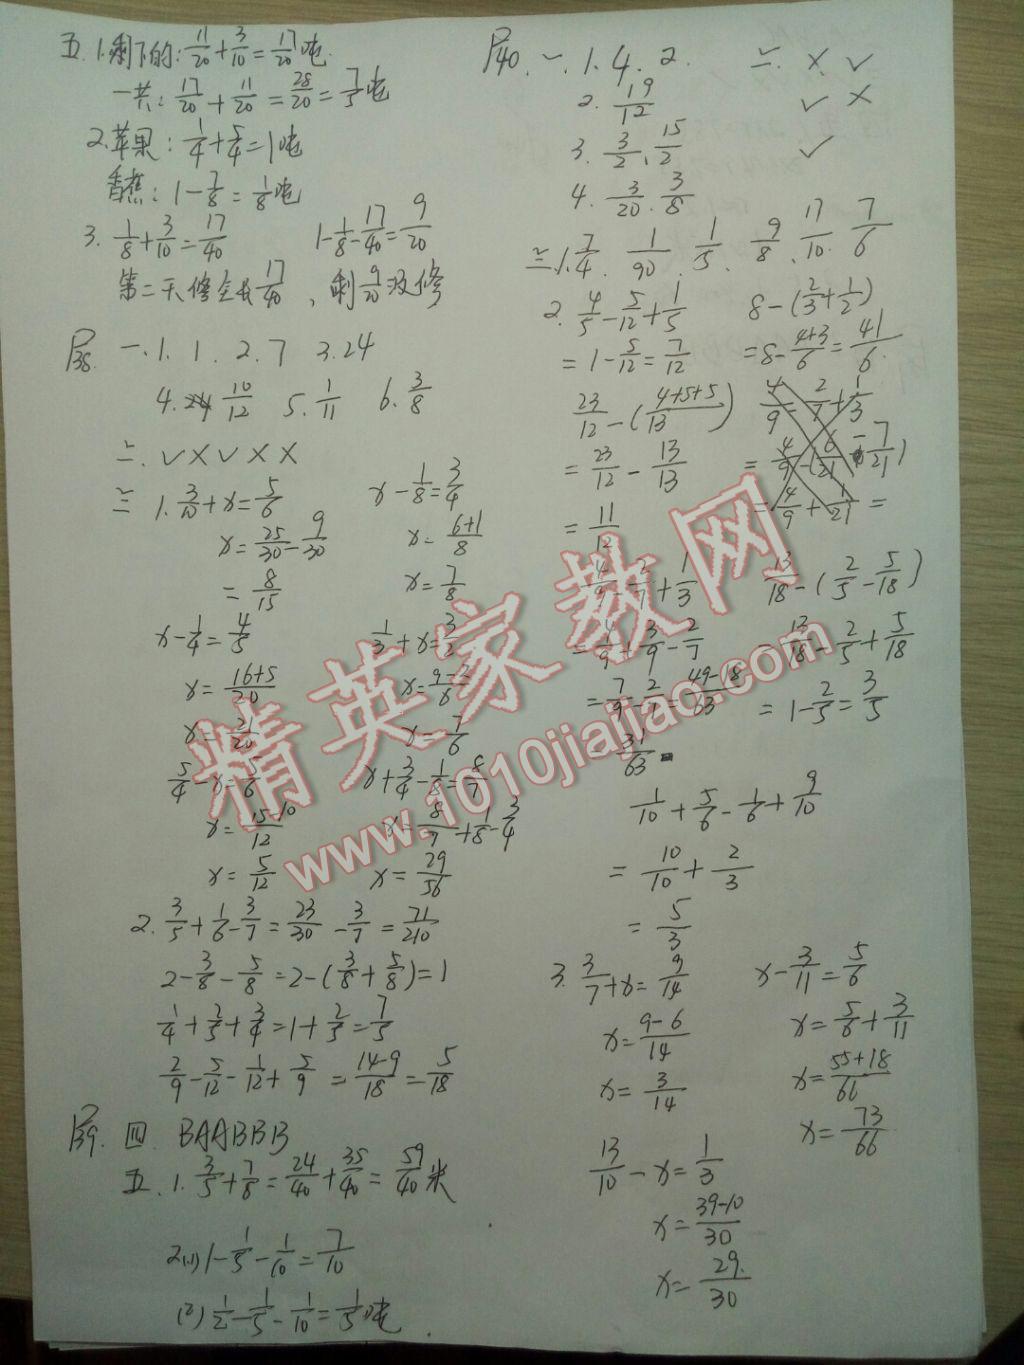 五.1.剩下的:11/20+3/10=17/20吨
一共:17/20+11/20=28/20=7/5吨
2.苹果:1/4+5/4=1吨
香蕉:1-7/8=1/8吨
3. 1/8+3/10=17/40 1-1/8-17/40=9/20
第二天修全长17/40,剩9/20没修
P38. 一.1. 1 . 2. 7 3. 24
4. 10/12 5. 1/11 6. 3/8
二. ✓×✓××
三 1. 3/10+x=5/6 x-1/8=3/4
x=25/30-9/30 x=6+1/8
=8/15 x=7/8
x-1/4=4/5 1/3+x=3/2
x=16+5/20 x=9-2/6
x=21/20 x=7/6
5/4-x=5/6 x+3/4-1/8=8/7
x=15-10/12 x=8/7+1/8-3/4
x=5/12 x=29/56
2. 3/5+1/6-3/7=23/30-3/7=71/210
2-3/8-5/8=2-(3/8+5/8)=1
1/4+2/5+3/4=1+2/5=7/5
2/9-5/12-1/12+5/9=14-9/18=5/18
P39. 四 BAABBB
五.1. 3/5+7/8=24/40+35/40=59/40米
2.(1) 1-1/5-1/10=7/10
(2) 1/2-1/5-1/10=1/5吨.
P40. 一.1. 4. 2. 二. × ✓
2. 19/12 ✓ ×
3. 3/2、15/2 ✓
4. 3/20. 3/8
三.1. 7/4、1/90、1/5、9/8、17/10、7/6
2. 4/5-5/12+1/5 8-(2/3+1/2)
=1-5/12=7/12 =8-4+3/6=41/6
23/12-(4+5+5/13) 4/9-2/7+1/3
=23/12-13/13 =4/9-(6/21-7/21)
=11/12 =4/9+1/21=
4/9-2/7+1/3 13/18-(2/5-5/18)
=4/9+3/9-2/7 =13/18-2/5+5/18
=7/9-2/7=49-18/63 =1-2/5=3/5
31/63
1/10+5/6-1/6+9/10
=10/10+2/3
=5/3
3. 3/7+x=9/14 x-3/11=5/6
x=9-6/14 x=5/6+3/11
x=3/14 x=55+18/66
x=73/66
13/10-x=1/3
x=39-10/30
x=29/30
精英家教网
www.1010jiajiao.com